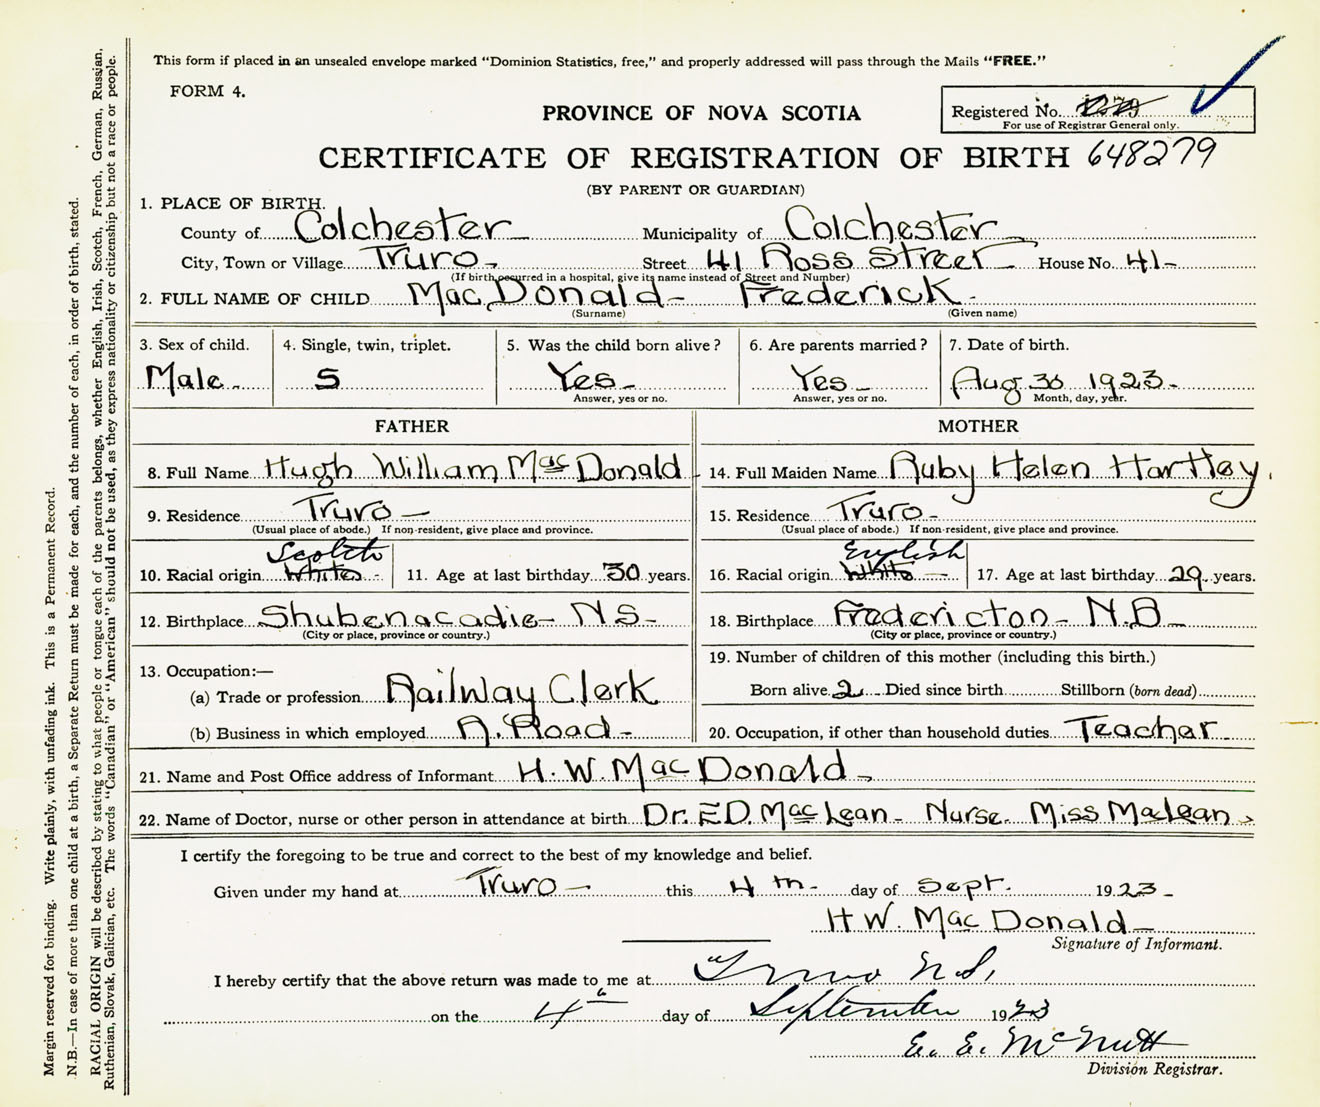 This form if placed in an unsealed envelope marked "Dominion Statistics, free," and properly addressed will pass through the Mails "FREE."
FORM 4.
PROVINCE OF NOVA SCOTIA
Registered No.
For use of Registrar General only.
CERTIFICATE OF REGISTRATION OF BIRTH 648279
(BY PARENT OR GUARDIAN)
1. PLACE OF BIRTH.
County of Colchester Municipality of Colchester
City, Town or Village Truro Street 41 Ross Street House No. 41
(If birth occurred in a hospital, give its name instead of Street and Number)
2. FULL NAME OF CHILD MacDonald Frederick
(Surname) (Given name)
3. Sex of child. 4. Single, twin, triplet. 5. Was the child born alive? 6. Are parents married? 7. Date of birth.
Male S Yes Yes Aug 30 1923
Answer, yes or no. Answer, yes or no. Month, day, year.
FATHER MOTHER
8. Full Name Hugh William MacDonald 14. Full Maiden Name Ruby Helen Harttey
9. Residence Truro 15. Residence Truro
(Usual place of abode.) If non-resident, give place and province. (Usual place of abode.) If non-resident, give place and province.
Scotch English
10. Racial origin White 11. Age at last birthday 30 years. 16. Racial origin White 17. Age at last birthday 29 years.
12. Birthplace Shubenacadie N S 18. Birthplace Fredericton N.B
(City or place, province or country.) (City or place, province or country.)
13. Occupation:— 19. Number of children of this mother (including this birth.)
(a) Trade or profession Railway Clerk Born alive 2 Died since birth Stillborn (born dead)
(b) Business in which employed R. Road 20. Occupation, if other than household duties Teacher
21. Name and Post Office address of Informant H. W. MacDonald
22. Name of Doctor, nurse or other person in attendance at birth Dr. E D. MacLean Nurse Miss MacLean
I certify the foregoing to be true and correct to the best of my knowledge and belief.
Given under my hand at Truro this 4 th day of Sept. 1923
H W. MacDonald
Signature of Informant.
I hereby certify that the above return was made to me at Truro N.S.
on the 4th day of September 1923
E. E. McNutt
Division Registrar.
Margin reserved for binding. Write plainly, with unfading ink. This is a Permanent Record.
N.B.—In case of more than one child at a birth, a Separate Return must be made for each, and the number of each, in order of birth, stated.
RACIAL ORIGIN will be described by stating to what people or tongue each of the parents belongs, whether English, Irish, Scotch, French, German, Russian,
Ruthenian, Slovak, Galician, etc. The words "Canadian" or "American" should not be used, as they express nationality or citizenship but not a race or people.